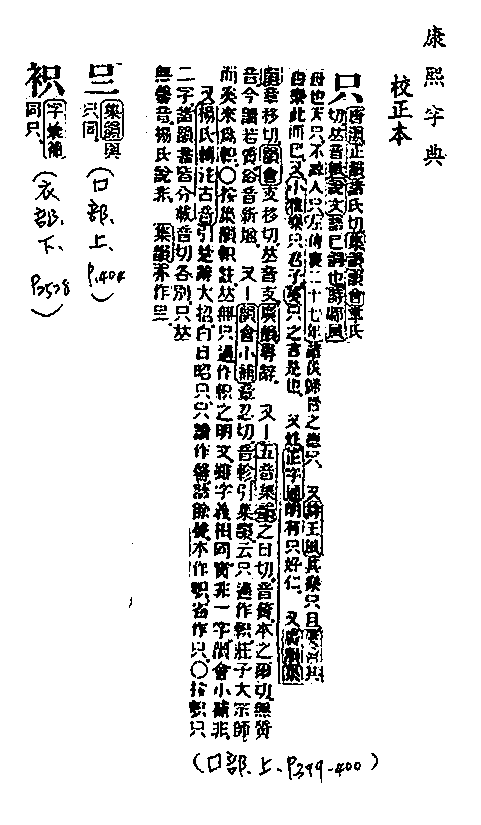 康熙字典
校正本
只
唐韻正韻諸氏切集韻韻會掌氏
切𠀤音紙說文語巳詞也詩鄘風
母也天只不諒人只左傳襄二十七年諸侯歸晉之德只 又詩王風其樂只且箋其
且樂此而已又小雅樂只君子箋只之言是也 又姓正字通明有只好仁 又廣韻集
韻章移切韻會支移切𠀤音支廣韻專辭 又｜五音集韻之日切音質本之爾切無質
音今讀若質俗音新增 又｜韻會小補章忍切音軫引集韻云只通作軹莊子大宗師
而奚來爲軹○按集韻軹註𠀤無只通作軹之明文雖字義相同實非一字韻會小補非
又楊氏轉注古音引楚辭大招白日昭只只讀作馨語餘聲本作軹省作只○按軹只
二字諸韻書皆分載音切各別只𠀤
無馨音楊氏說非 集韻亦作
(口部、上、P399-400)
集韻與
只同
(口部、上、P.404)
字彙補
同只
(衣部、下、P2538)